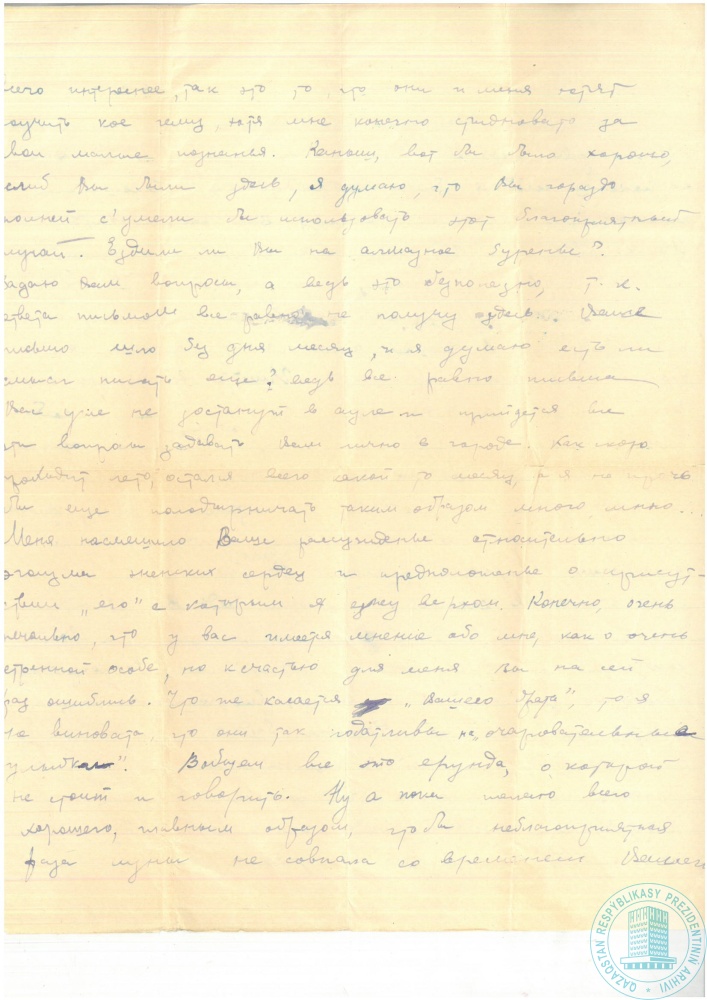 интереснее, так это то, что они и меня хотят
кое чему, хотя мне конечно стыдновато за
свои малые познанья. Каныш, вот бы было хорошо,
Вы были здесь, я думаю, что Вы гораздо
с'умели бы использовать этот благоприятный
случай. Ездили ли Вы на алмазное буренье?
Задаю Вам вопросы, а ведь это бесполезно, т.к.
ответа письмом все равно не получу здесь. Ваше
письмо шло без дня месяц, и я думаю есть ли
смысл писать еще? ведь все равно письма
уже не достанут в ауле и придется все
эти вопросы задавать Вам лично в городе. Как мало
лето, остался всего какой то месяц, а я не прочь
бы еще таким образом много много...
Меня насмешило Ваше рассужденье относительно
эгоизма женских сердец и предположенье о присут-
ствии „его“ с которым я езжу верхом. Конечно, очень
печально, что у вас имеется мнение обо мне, как о очень
странной особе, но к счастью для меня вы на сей
раз ошиблись. Что же касается „Вашего брата“, то я
не виновата, что они так податливы на „очаровательные
улыбки“. Вобщем все это ерунда, о которой
не стоит и говорить. Ну а пока желаю всего
хорошего, главным образом, чтобы неблагоприятная
фаза луны не совпала со временем Вашего
QAZAQSTAN RESPÝBLIKASY PREZIDENTINIŃ ARHIVI